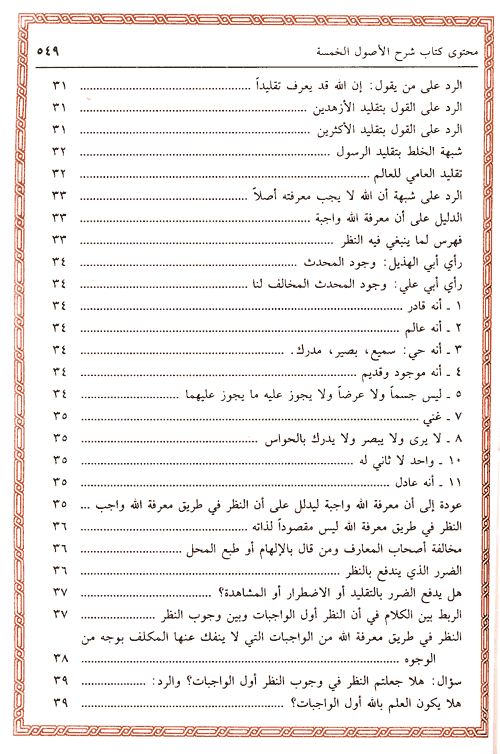 محتوى كتاب شرح الأصول الخمسة ٥٤٩
الرد على من يقول: إن الله قد يعرف تقليداً ..... ٣١
الرد على القول بتقليد الأزهدين ..... ٣١
الرد على القول بتقليد الأكثرين ..... ٣١
شبهة الخلط بتقليد الرسول ..... ٣٢
تقليد العامي للعالم ..... ٣٢
الرد على شبهة أن الله لا يجب معرفته أصلاً ..... ٣٣
الدليل على أن معرفة الله واجبة ..... ٣٣
فهرس لما ينبغي فيه النظر ..... ٣٣
رأي أبي الهذيل: وجود المحدث ..... ٣٤
رأي أبي علي: وجود المحدث المخالف لنا ..... ٣٤
١ ـ أنه قادر ..... ٣٤
٢ ـ أنه عالم ..... ٣٤
٣ ـ أنه حي: سميع، بصير، مدرك. ..... ٣٤
٤ ـ أنه موجود وقديم ..... ٣٤
٥ ـ ليس جسماً ولا عرضاً ولا يجوز عليه ما يجوز عليهما ..... ٣٤
٧ ـ غني ..... ٣٥
٨ ـ لا يرى ولا يبصر ولا يدرك بالحواس ..... ٣٥
١٠ ـ واحد لا ثاني له ..... ٣٥
١١ ـ أنه عادل ..... ٣٥
عودة إلى أن معرفة الله واجبة ليدلل على أن النظر في طريق معرفة الله واجب ... ٣٥
النظر في طريق معرفة الله ليس مقصوداً لذاته ..... ٣٦
مخالفة أصحاب المعارف ومن قال بالإلهام أو طبع المحل ..... ٣٦
الضرر الذي يندفع بالنظر ..... ٣٦
هل يدفع الضرر بالتقليد أو الاضطرار أو المشاهدة؟ ..... ٣٧
الربط بين الكلام في أن النظر أول الواجبات وبين وجوب النظر ..... ٣٧
النظر في طريق معرفة الله من الواجبات التي لا ينفك عنها المكلف بوجه من
الوجوه ..... ٣٨
سؤال: هلا جعلتم النظر في وجوب النظر أول الواجبات؟ والرد: ..... ٣٩
هلا يكون العلم بالله أول الواجبات؟ ..... ٣٩